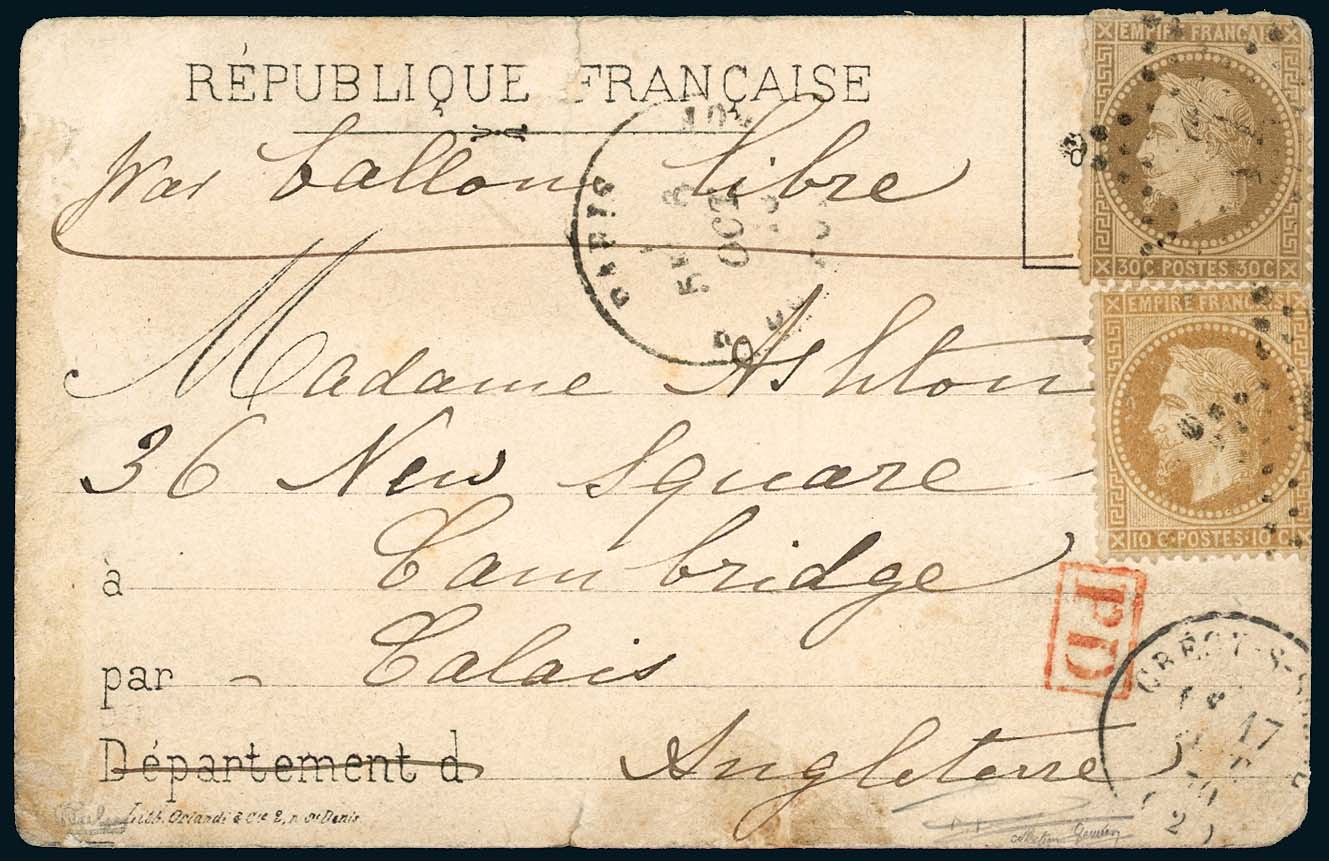 RÉPUBLIQUE FRANÇAISE
par ballon libre
EMPIRE FRANÇAIS
30 C POSTES 30 C
PARIS
OCT
Madame Ashton
EMPIRE FRANC
10 C POSTES 10 C
36 New Square
à Cambridge
PD
par - Calais
CRÉCY-S-
17
70
Département d Angleterre
Lith. Orlandi & Cie 2, r. St Denis.